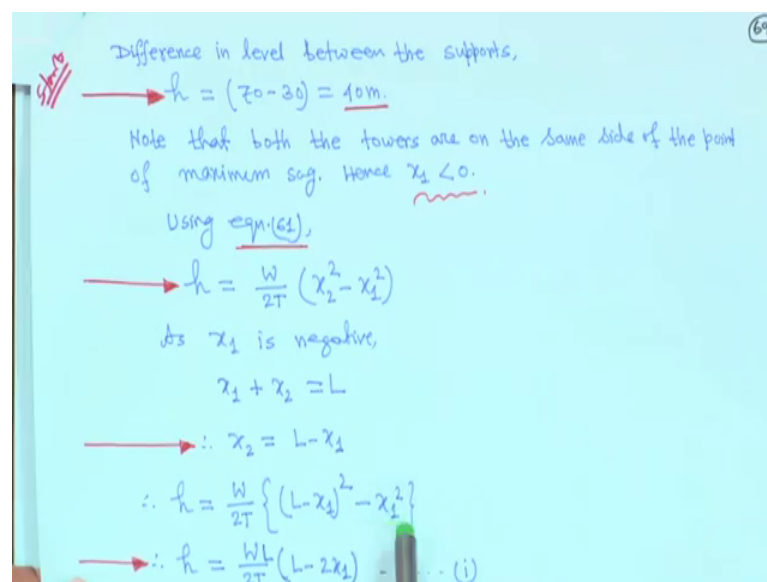 60
Difference in level between the supports,
h = (70 - 30) = 40m.
Note that both the towers are on the same side of the point
of maximum sag. Hence x₁ < 0.
Using eqn.(61),
h = W/2T (x₂² - x₁²)
As x₁ is negative,
x₁ + x₂ = L
∴ x₂ = L - x₁
∴ h = W/2T {(L - x₁)² - x₁²}
∴ h = WL/2T (L - 2x₁) - ... (i)